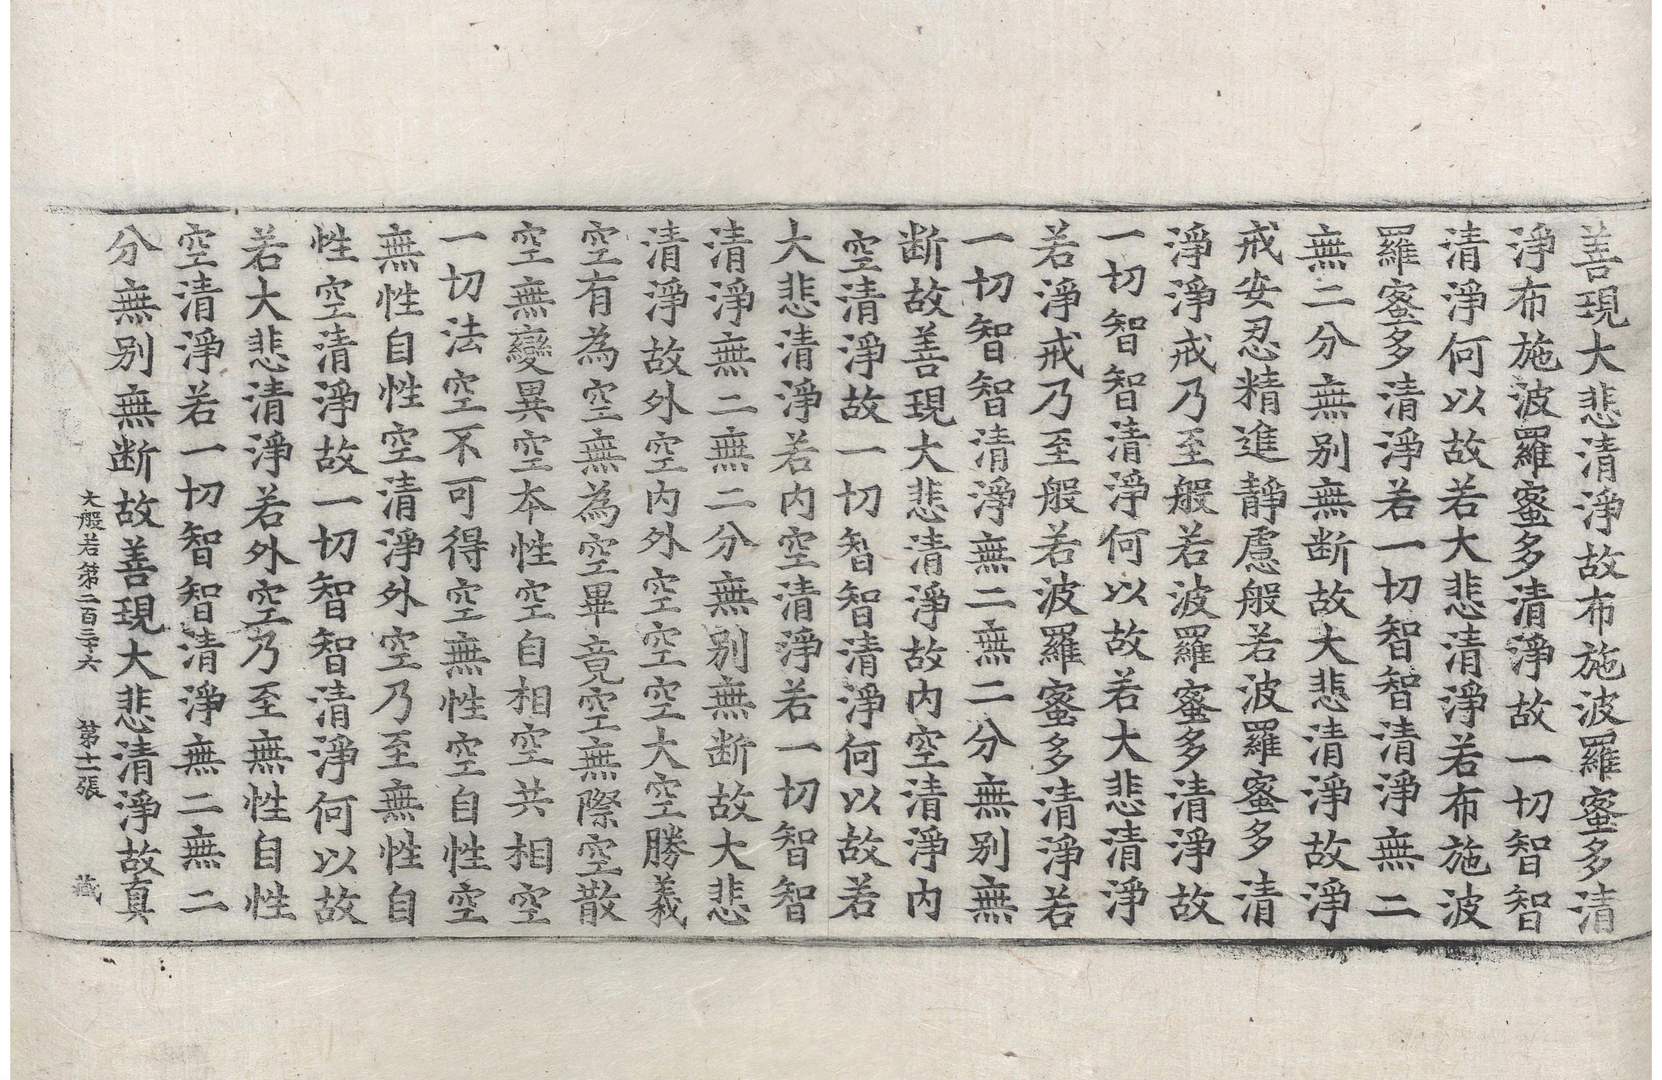 善現大悲清淨故布施波羅蜜多清
淨布施波羅蜜多清淨故一切智智
清淨何以故若大悲清淨若布施波
羅蜜多清淨若一切智智清淨無二
無二分無別無断故大悲清淨故淨
戒安忍精進靜慮般若波羅蜜多清
淨淨戒乃至般若波羅蜜多清淨故
一切智智清淨何以故若大悲清淨
若淨戒乃至般若波羅蜜多清淨若
一切智智清淨無二無二分無別無
断故善現大悲清淨故內空清淨內
空清淨故一切智智清淨何以故若
大悲清淨若內空清淨若一切智智
清淨無二無二分無別無断故大悲
清淨故外空內外空空空大空勝義
空有為空無為空畢竟空無際空散
空無變異空本性空自相空共相空
一切法空不可得空無性空自性空
無性自性空清淨外空乃至無性自
性空清淨故一切智智清淨何以故
若大悲清淨若外空乃至無性自性
空清淨若一切智智清淨無二無二
分無別無断故善現大悲清淨故真
大般若第二百三十六 第十一張 藏